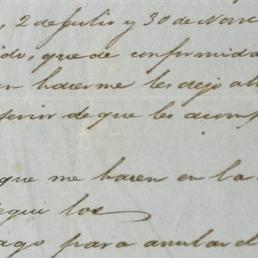 , 2 de Julio y 30 de Nove
ido, que de conformida
en hacerme les dejo ab
ferir de que les acomp
que me hacen en la
equi los
ago para anular el